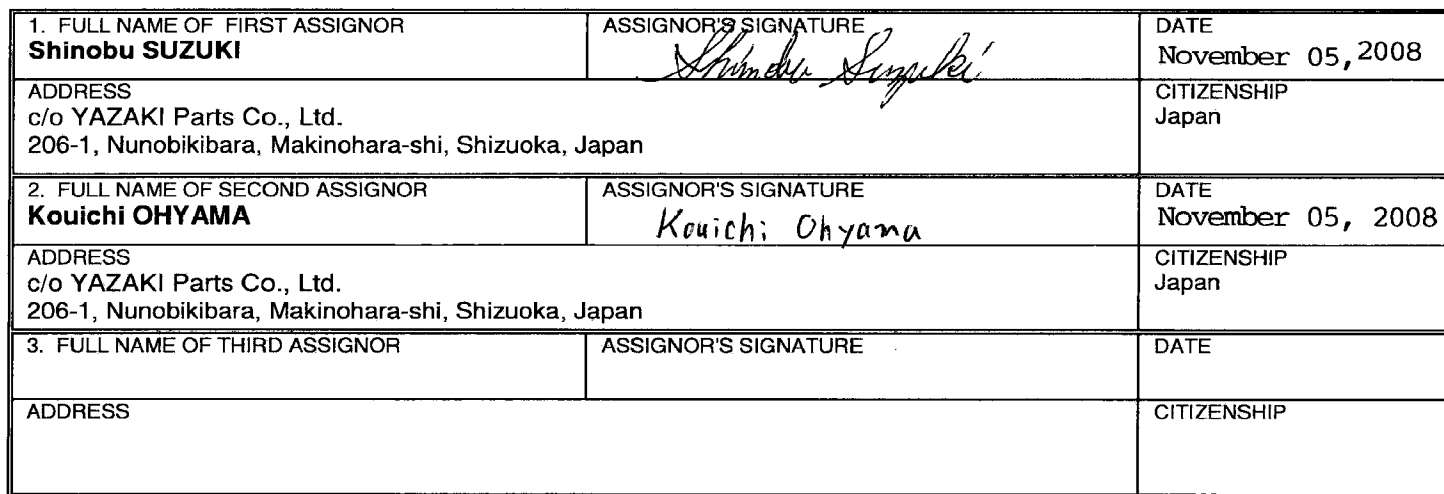 1. FULL NAME OF FIRST ASSIGNOR
Shinobu SUZUKI
ASSIGNOR'S SIGNATURE
Shinobu Suzuki
DATE
November 05, 2008
ADDRESS
c/o YAZAKI Parts Co., Ltd.
206-1, Nunobikibara, Makinohara-shi, Shizuoka, Japan
CITIZENSHIP
Japan
2. FULL NAME OF SECOND ASSIGNOR
Kouichi OHYAMA
ASSIGNOR'S SIGNATURE
Kouichi Ohyama
DATE
November 05, 2008
ADDRESS
c/o YAZAKI Parts Co., Ltd.
206-1, Nunobikibara, Makinohara-shi, Shizuoka, Japan
CITIZENSHIP
Japan
3. FULL NAME OF THIRD ASSIGNOR
ASSIGNOR'S SIGNATURE
DATE
ADDRESS
CITIZENSHIP